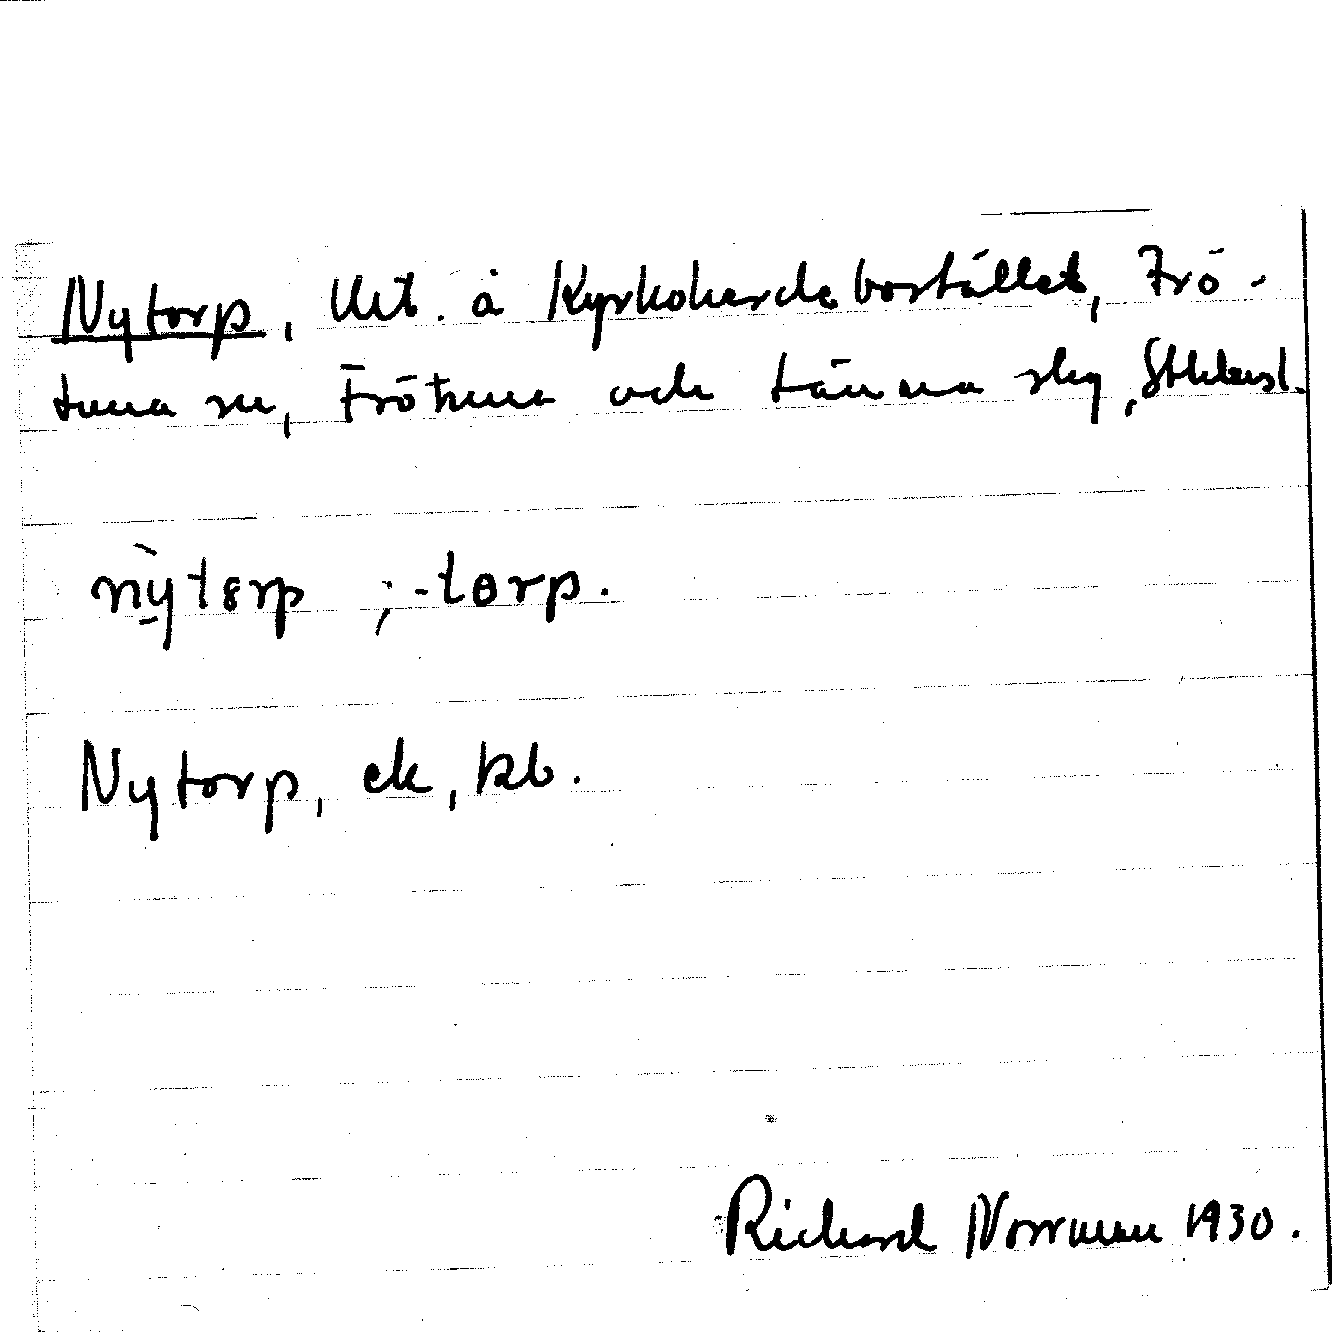 Nytorp, lht. å Kyrkoherdebostället, Frö-
tuna sn, Frötuna och Länna skg, Sthlmsl.
nỳtɵrp ; -tɵrp.
Nytorp, ek, kb.
Richard Norrman 1930.